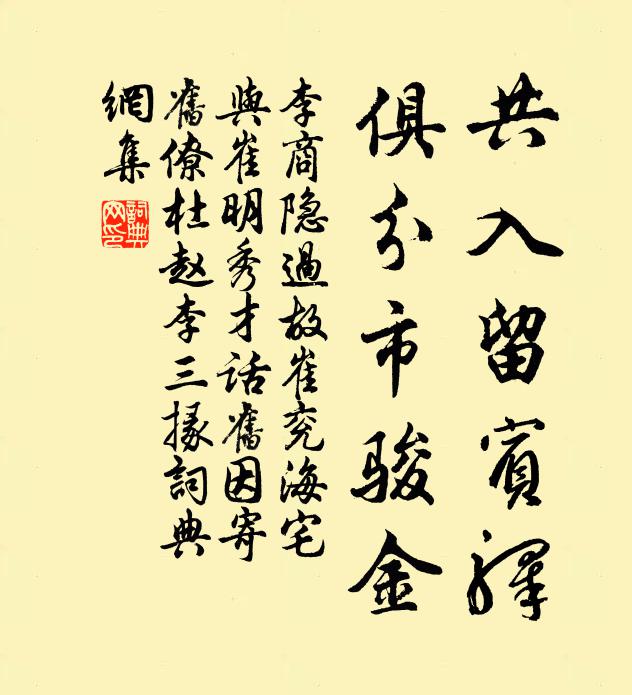 共入留賓驛
俱分市骏金
李商隐過故崔兖海宅
與崔明秀才話舊因寄
舊僚杜赵李三掾詞典
網集
詞典
网印